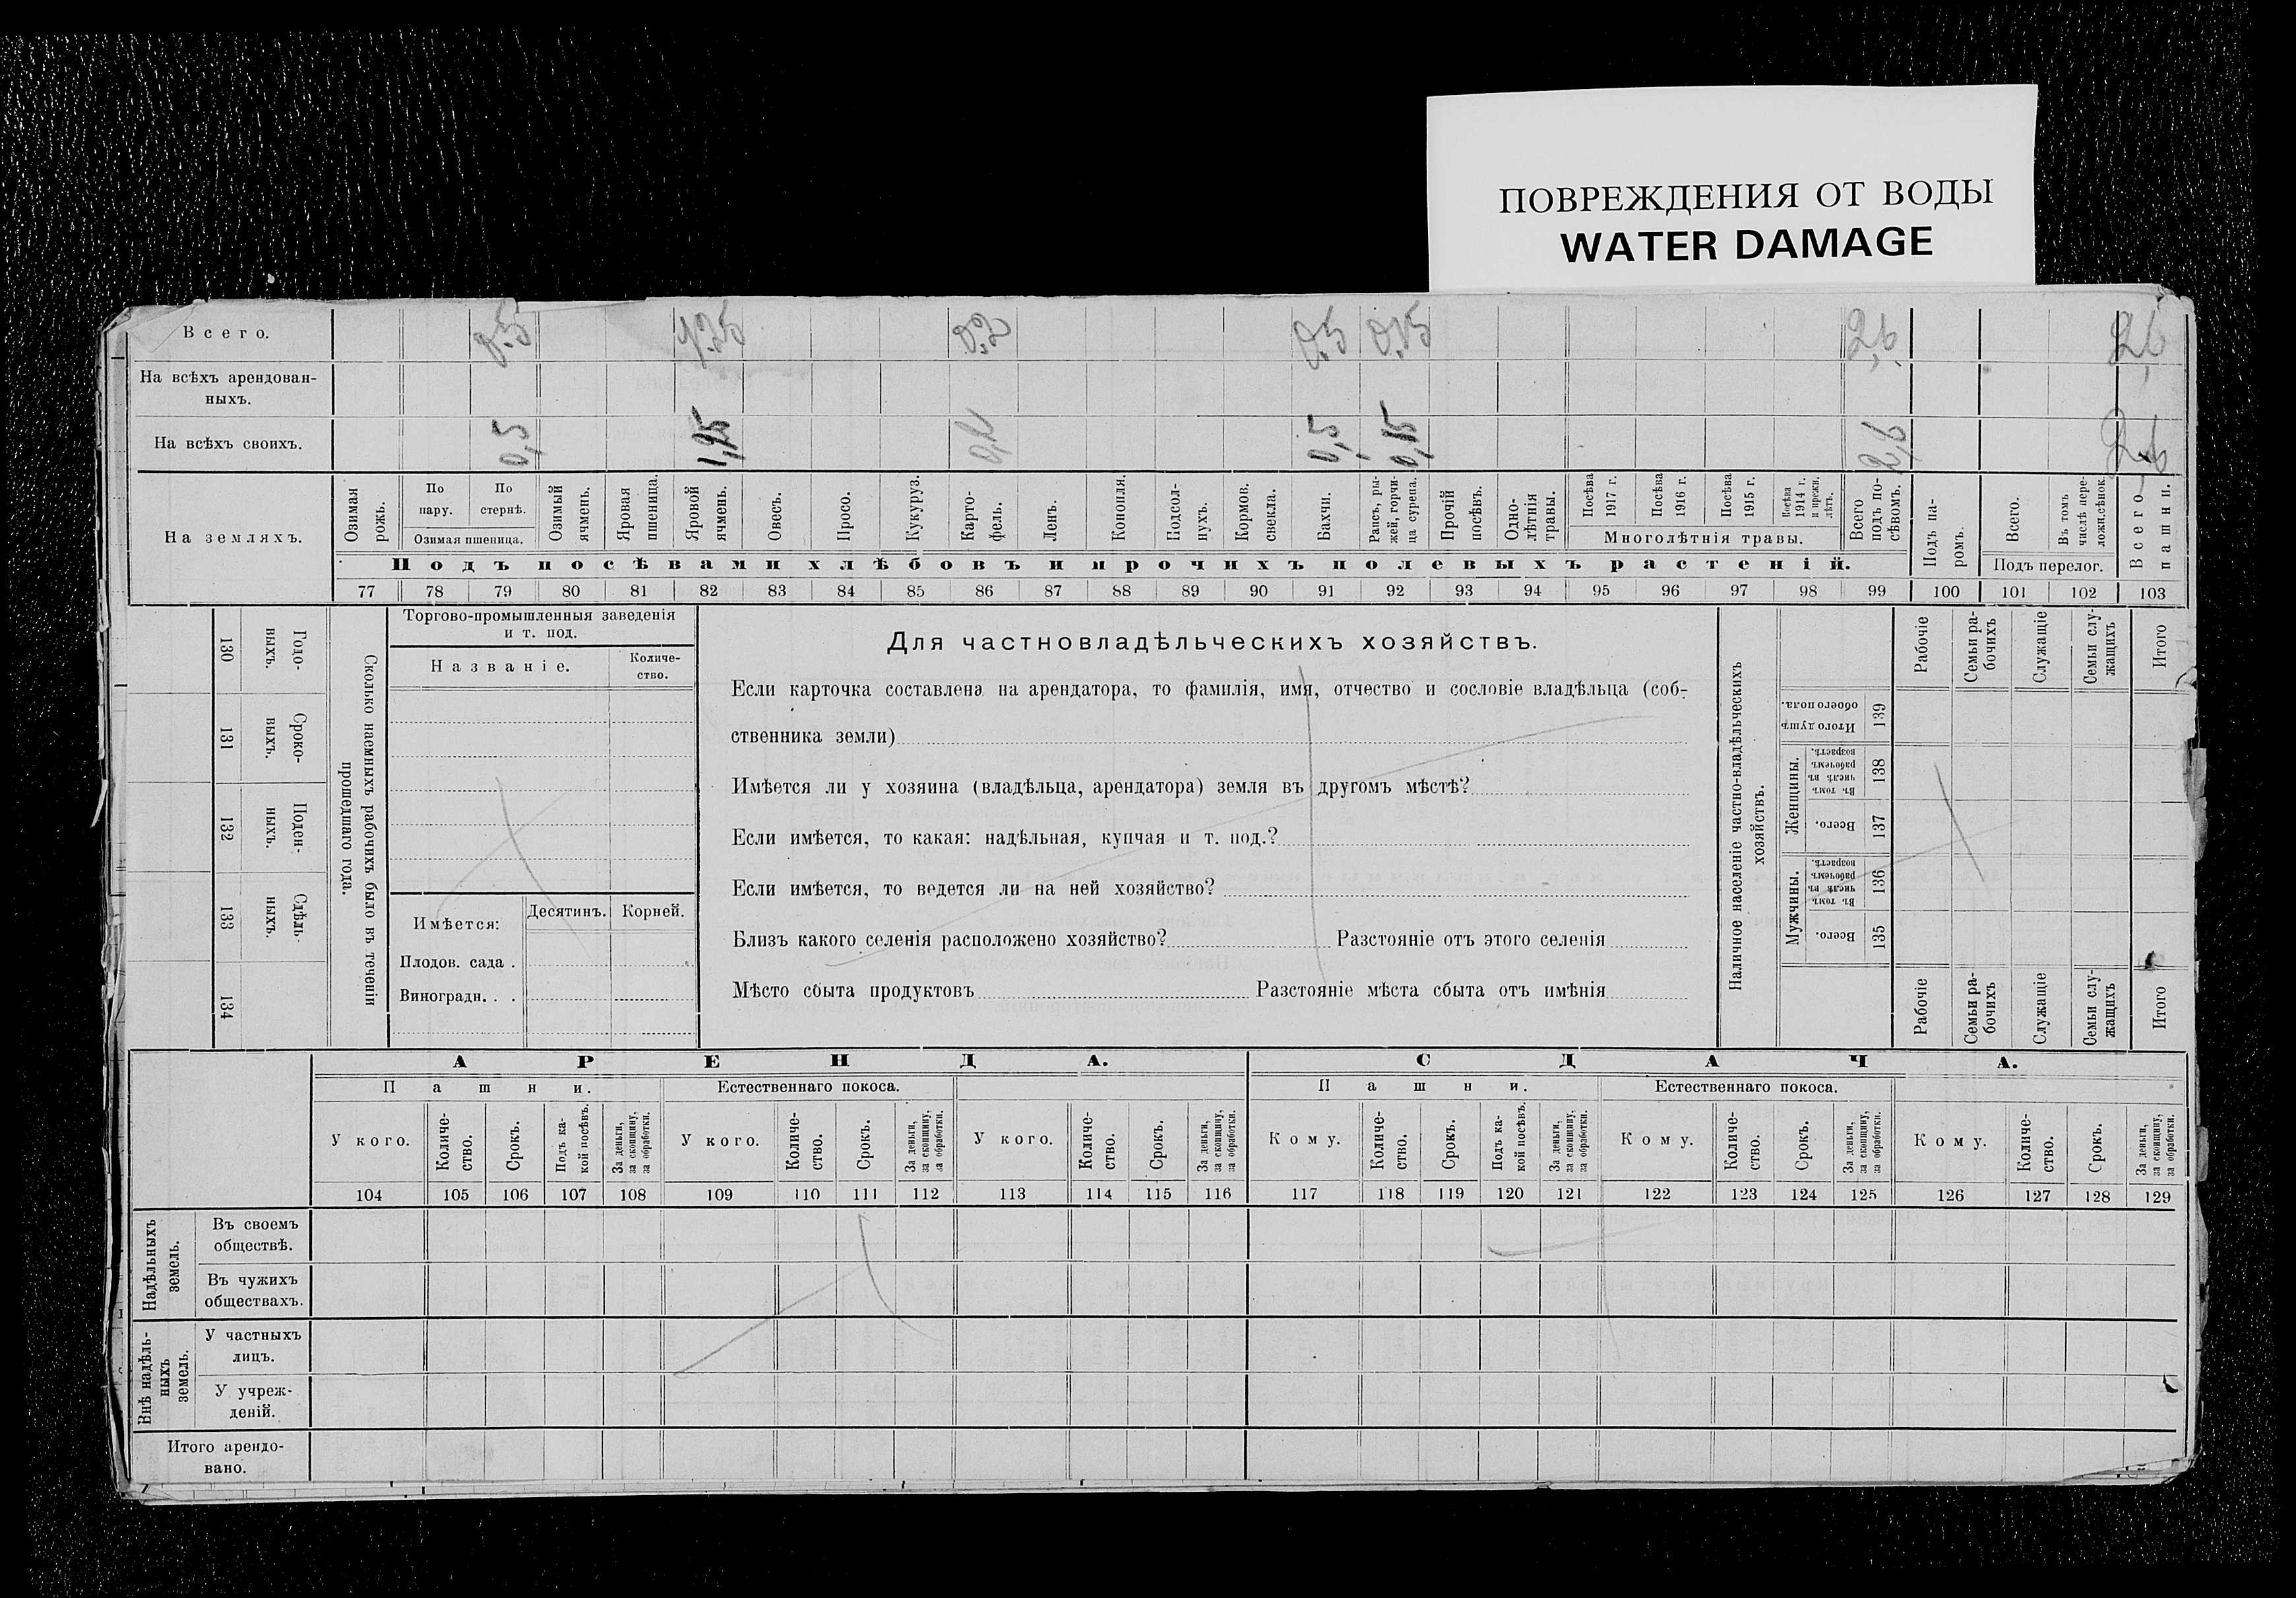 ПОВРЕЖДЕНИЯ ОТ ВОДЫ
WATER DAMAGE
Всего. 0.5 1.25 0.2 0.5 0.15 2,6 2,6
На всѣхъ арендован-
ныхъ.
На всѣхъ своихъ. 0,5 1,25 0,2 0,5 0,15 2,6 2,6
На земляхъ.
Озимая рожь.
По пару.
По стернѣ.
Озимая пшеница.
Озимый ячмень.
Яровая пшеница.
Яровой ячмень.
Овесъ.
Просо.
Кукуруз.
Карто-
фель.
Ленъ.
Конопля.
Подсол-
нухъ.
Кормов. свекла.
Бахчи.
Рапсъ, ры-
жей, горчи-
ца сурепа.
Прочій посѣвъ.
Одно-
лѣтнія травы.
Посѣва 1917 г.
Посѣва 1916 г.
Посѣва 1915 г.
Посѣва 1914 г. и прежн. лѣтъ.
Многолѣтнія травы.
Всего подъ по-
сѣвомъ.
Подъ па-
ромъ.
Всего.
Въ томъ числѣ пере-
ложн.сѣнок.
Подъ перелог.
Всего пашни.
Подъ посѣвами хлѣбовъ и прочихъ полевыхъ растеній.
77 78 79 80 81 82 83 84 85 86 87 88 89 90 91 92 93 94 95 96 97 98 99 100 101 102 103
130 Годо-
выхъ.
131 Сроко-
выхъ.
132 Поден-
ныхъ.
133 Сдѣль-
ныхъ.
134
Сколько наемныхъ рабочихъ было въ теченіи
прошедшаго года.
Торгово-промышленныя заведенія
и т. под.
Названіе. Количе-
ство.
Имѣется: Десятинъ. Корней.
Плодов. сада .
Виноградн. . .
Для частновладѣльческихъ хозяйствъ.
Если карточка составлена на арендатора, то фамилія, имя, отчество и сословіе владѣльца (соб-
ственника земли)
Имѣется ли у хозяина (владѣльца, арендатора) земля въ другомъ мѣстѣ?
Если имѣется, то какая: надѣльная, купчая и т. под.?
Если имѣется, то ведется ли на ней хозяйство?
Близъ какого селенія расположено хозяйство? Разстояніе отъ этого селенія
Мѣсто сбыта продуктовъ Разстояніе мѣста сбыта отъ имѣнія
Наличное населеніе частно-владѣльческихъ
хозяйствъ.
Рабочіе
Семьи ра-
бочихъ
Служащіе
Семьи слу-
жащихъ
Итого
Итого душъ обоего пола. 139
Женщины.
Въ томъ числѣ въ рабочемъ возрастѣ. 138
Всего. 137
Мужчины.
Въ томъ числѣ въ рабочемъ возрастѣ. 136
Всего. 135
Рабочіе
Семьи ра-
бочихъ
Служащіе
Семьи слу-
жащихъ
Итого
АРЕНДА. СДАЧА.
Пашни. Естественнаго покоса. Пашни. Естественнаго покоса.
У кого.
Количе-
ство.
Срокъ.
Подъ ка-
кой посѣвъ.
За деньги,
за скопщину,
за обработки.
У кого.
Количе-
ство.
Срокъ.
За деньги,
за скопщину,
за обработки.
У кого.
Количе-
ство.
Срокъ.
За деньги,
за скопщину,
за обработки.
Кому.
Количе-
ство.
Срокъ.
Подъ ка-
кой посѣвъ.
За деньги,
за скопщину,
за обработки.
Кому.
Количе-
ство.
Срокъ.
За деньги,
за скопщину,
за обработки.
Кому.
Количе-
ство.
Срокъ.
За деньги,
за скопщину,
за обработки.
104 105 106 107 108 109 110 111 112 113 114 115 116 117 118 119 120 121 122 123 124 125 126 127 128 129
Надѣльныхъ
земель.
Въ своемъ
обществѣ.
Въ чужихъ
обществахъ.
Внѣ надѣль-
ныхъ
земель.
У частныхъ
лицъ.
У учреж-
деній.
Итого арендо-
вано.